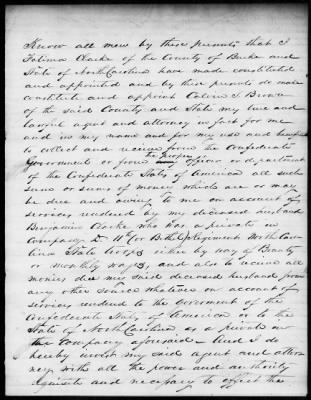 Know all men by these presents that I
Fatima Clarke of the County of Burke and
State of North Carolina have made constituted
and appointed and by these presents do make
constitute and appoint Calvin J Brown
of the said County and State my true and
lawful agent and attorney in fact for me
and in my name and for my use and benefit
to collect and receive from the Confederate
Government or from the proper officer or department
of the Confederate States of America all such
sum or sums of money which are or may
be due and owing to me on account of
services rendered by my deceased husband
Benjamin Clarke who was a private in
Company D 11th (or Bethel) Regiment North Caro
lina State troops either by way of Bounty
or monthly wages, and also to receive all
monies due my said deceased husband from
any other source whatever on account of
services rendered to the Government of the
Confederate States of America or to the
State of North Carolina as a private in
the Company aforesaid - And I do
hereby invest my said agent and attor
ney with all the power and authority
requisite and necessary to effect the